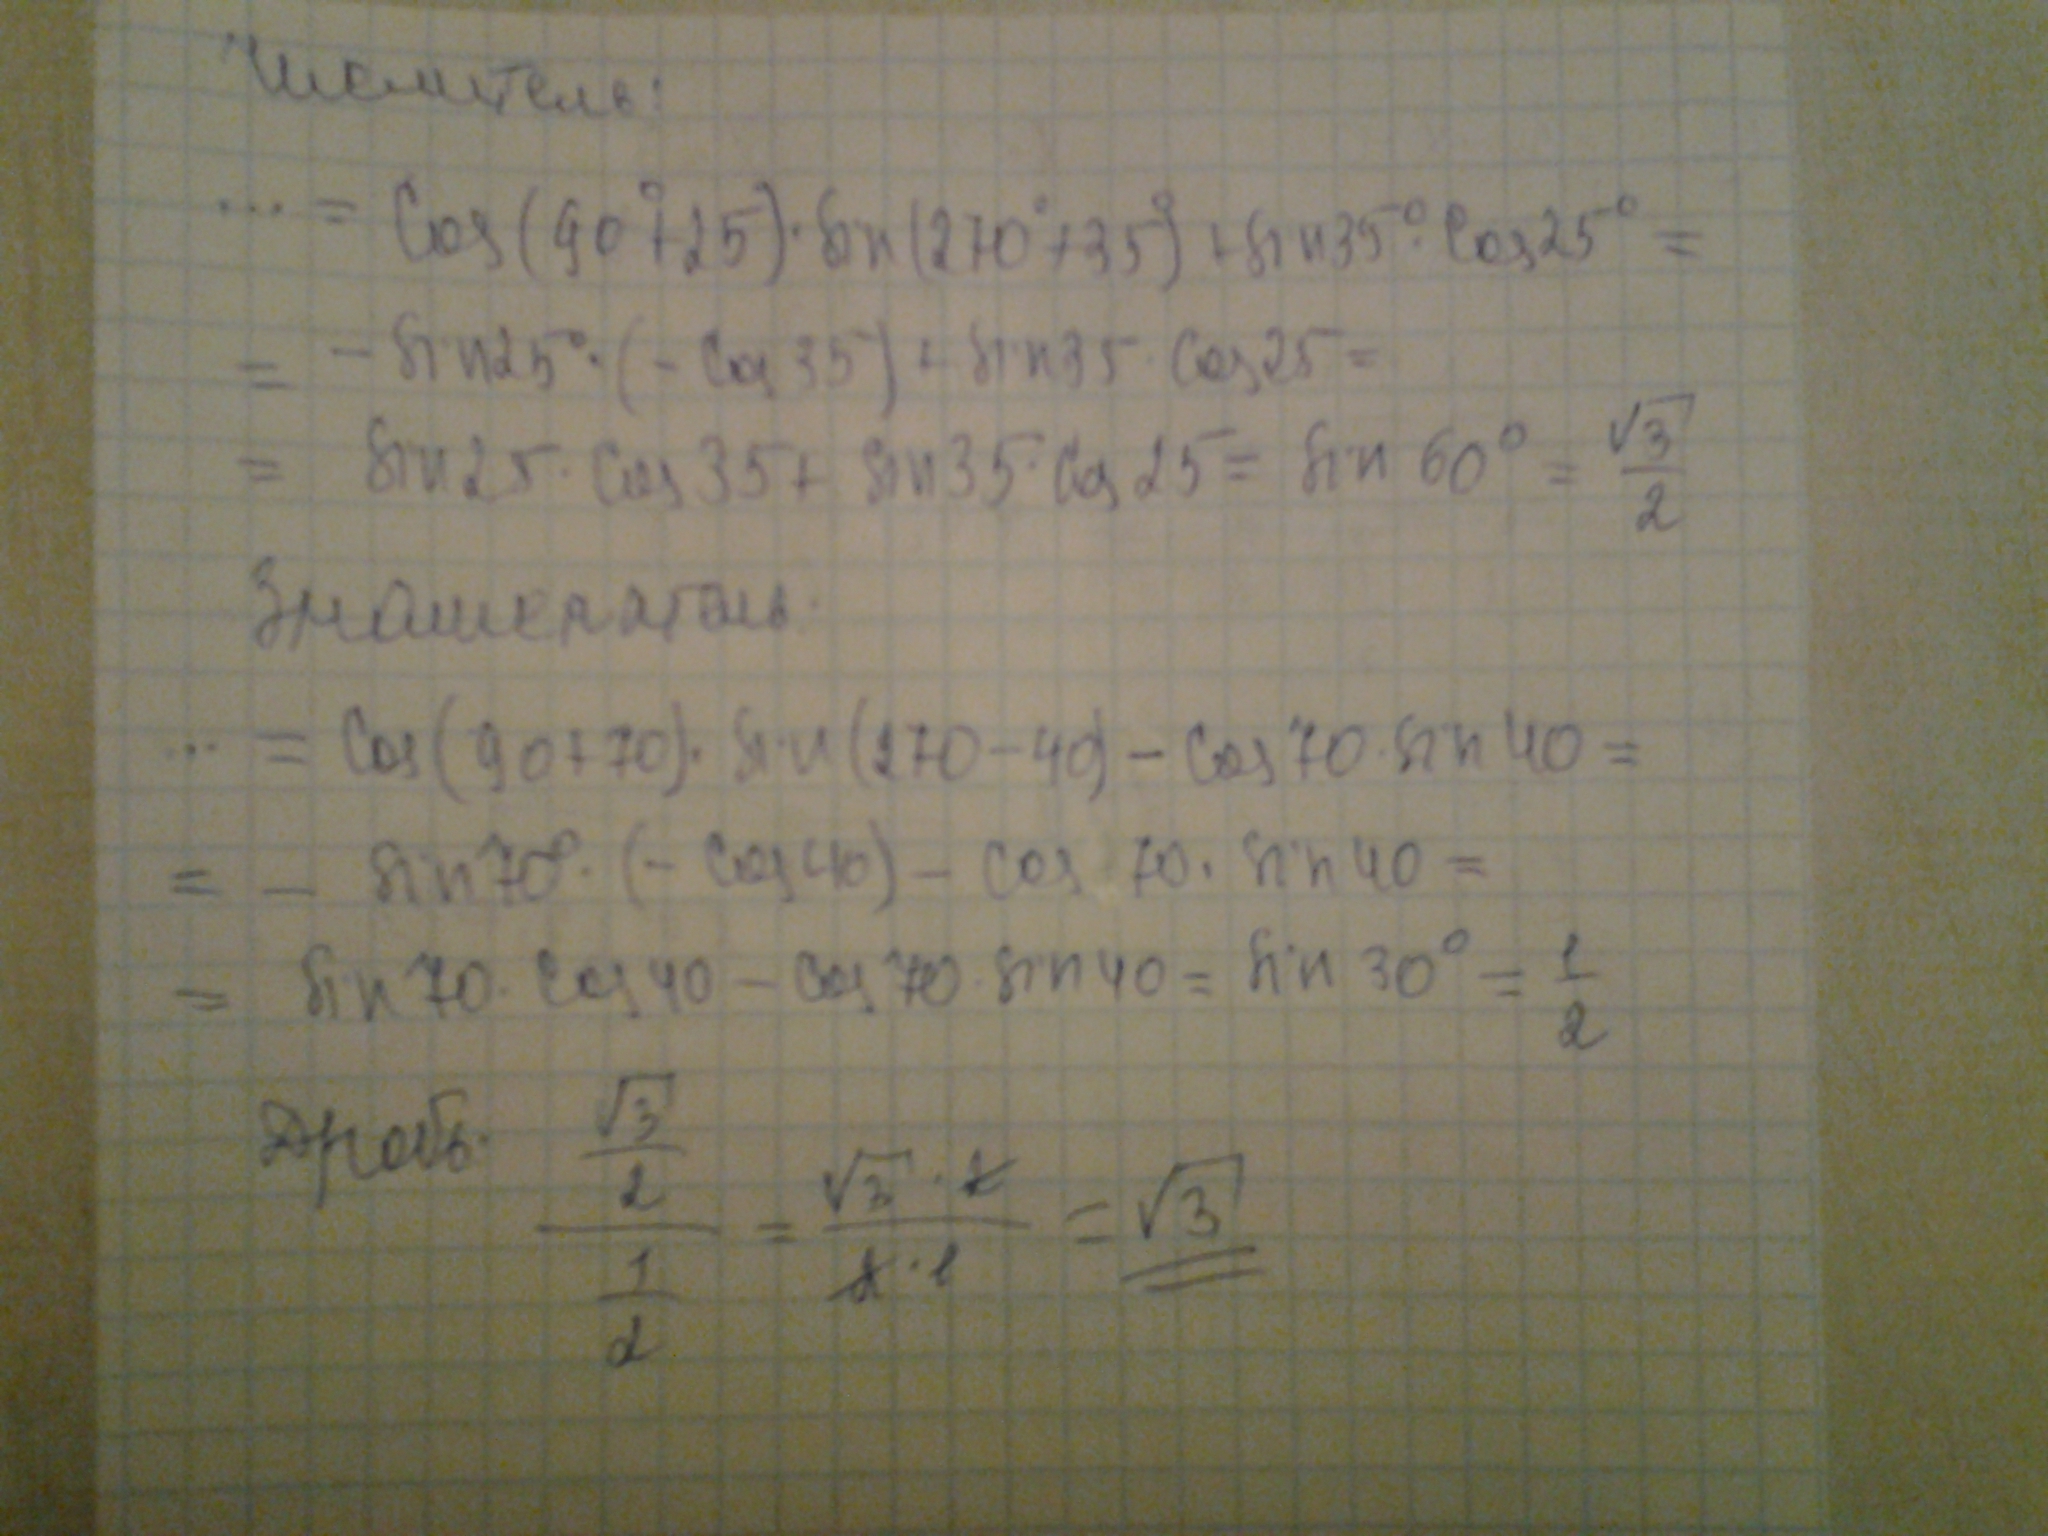 Числитель:
... = Cos(90°+25°)·Sin(270°+35°)+Sin35°·Cos25°=
= -Sin25°·(-Cos35)+Sin35·Cos25=
= Sin25·Cos35+Sin35·Cos25=Sin60°=√3/2
Знаменатель:
... = Cos(90+70)·Sin(270-40)-Cos70·Sin40=
= -Sin70°·(-Cos40)-Cos70·Sin40=
= Sin70·Cos40-Cos70·Sin40=Sin30°=1/2
Дробь: (√3/2)/(1/2) = (√3·2)/(2·1) = √3